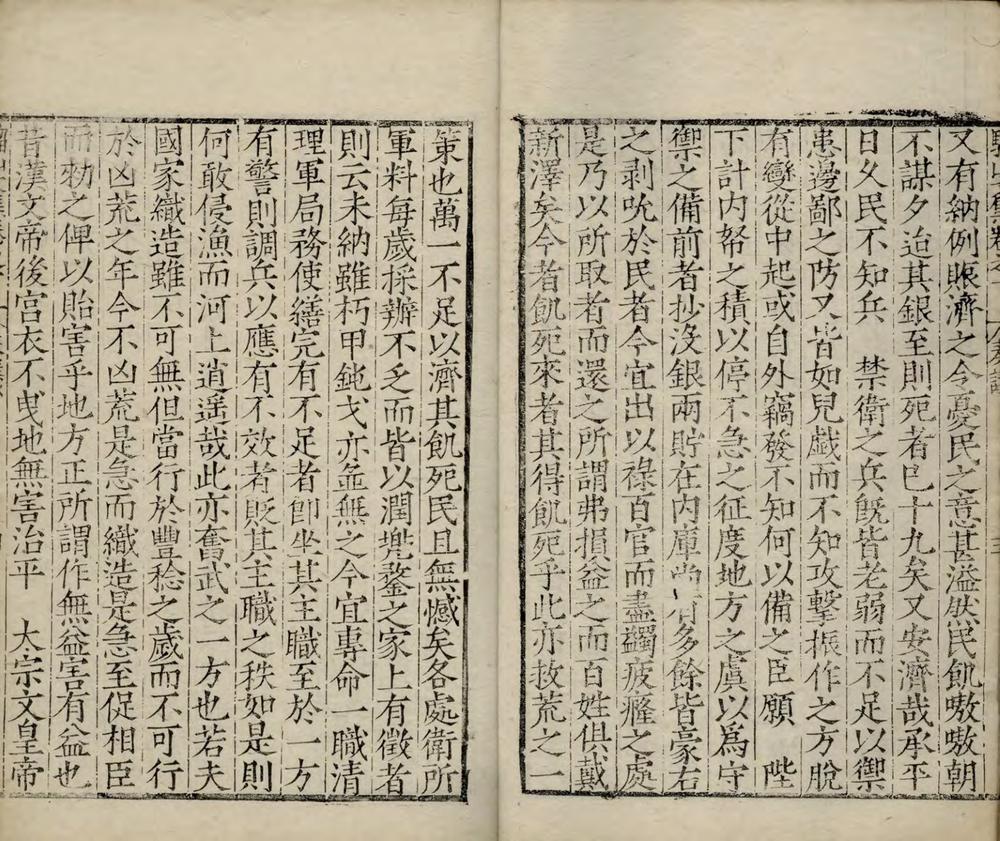 又有納例賑濟之令憂民之意甚溢然民飢嗷嗷朝
不謀夕迨其銀至則死者已十九矣又安濟哉承平
日久民不知兵　禁衛之兵旣皆老弱而不足以禦
患邊鄙之防又皆如兒戲而不知攻擊振作之方脫
有變從中起或自外竊發不知何以備之臣願　陛
下計內帑之積以停不急之征度地方之虞以爲守
禦之備前者抄沒銀兩貯在內庫尚有多餘皆豪右
之剥吮於民者今宜出以祿百官而盡蠲疲癃之處
是乃以所取者而還之所謂弗損益之而百姓俱戴
新澤矣今者飢死來者其得飢死乎此亦救荒之一
策也萬一不足以濟其飢死民且無憾矣各處衛所
軍料每歲採辦不乏而皆以潤兠鍪之家上有徵者
則云未納雖朽甲鈍戈亦並無之今宜專命一職清
理軍局務使繕完有不足者卽坐其主職至於一方
有警則調兵以應有不效者貶其主職之秩如是則
何敢侵漁而河上逍遥哉此亦奮武之一方也若夫
國家織造雖不可無但當行於豐稔之歲而不可行
於凶荒之年今不凶荒是急而織造是急至促相臣
而勑之俾以貽害乎地方正所謂作無益害有益也
昔漢文帝後宫衣不曳地無害治平　太宗文皇帝